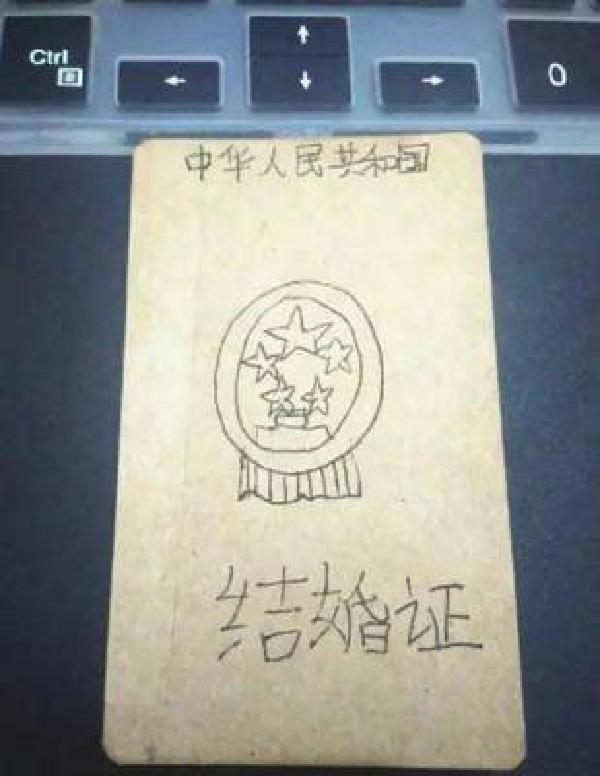 Ctrl
← ↑ ↓ → 0
中华人民共和国
结婚证